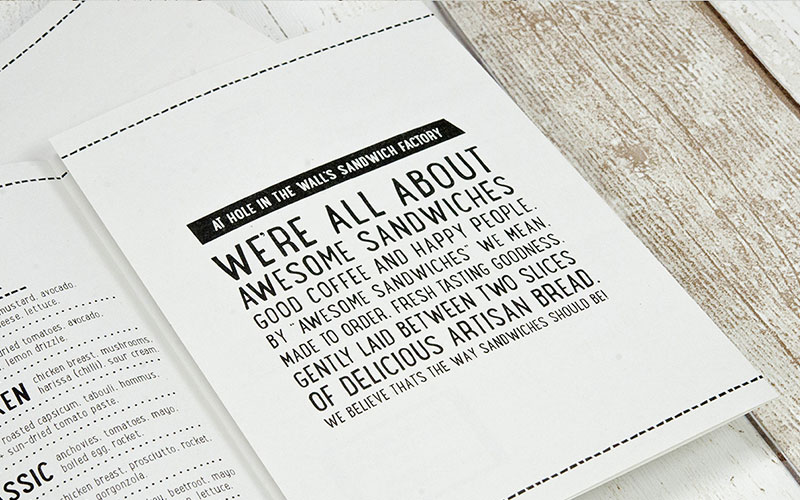 AT HOLE IN THE WALL'S SANDWICH FACTORY
WE'RE ALL ABOUT
AWESOME SANDWICHES
GOOD COFFEE AND HAPPY PEOPLE.
BY "AWESOME SANDWICHES" WE MEAN,
MADE TO ORDER, FRESH TASTING GOODNESS.
GENTLY LAID BETWEEN TWO SLICES
OF DELICIOUS ARTISAN BREAD.
WE BELIEVE THATS THE WAY SANDWICHES SHOULD BE!
mustard, avocado,
lettuce.
tomatoes, avocado,
lemon drizzle.
chicken breast, mushrooms,
harissa (chilli), sour cream.
roasted capsicum, tabouli, hommus,
sun-dried tomato paste.
anchovies, tomatoes, mayo,
boiled egg, rocket.
chicken breast, prosciutto, rocket,
gorgonzola.
beetroot, mayo
lettuce.